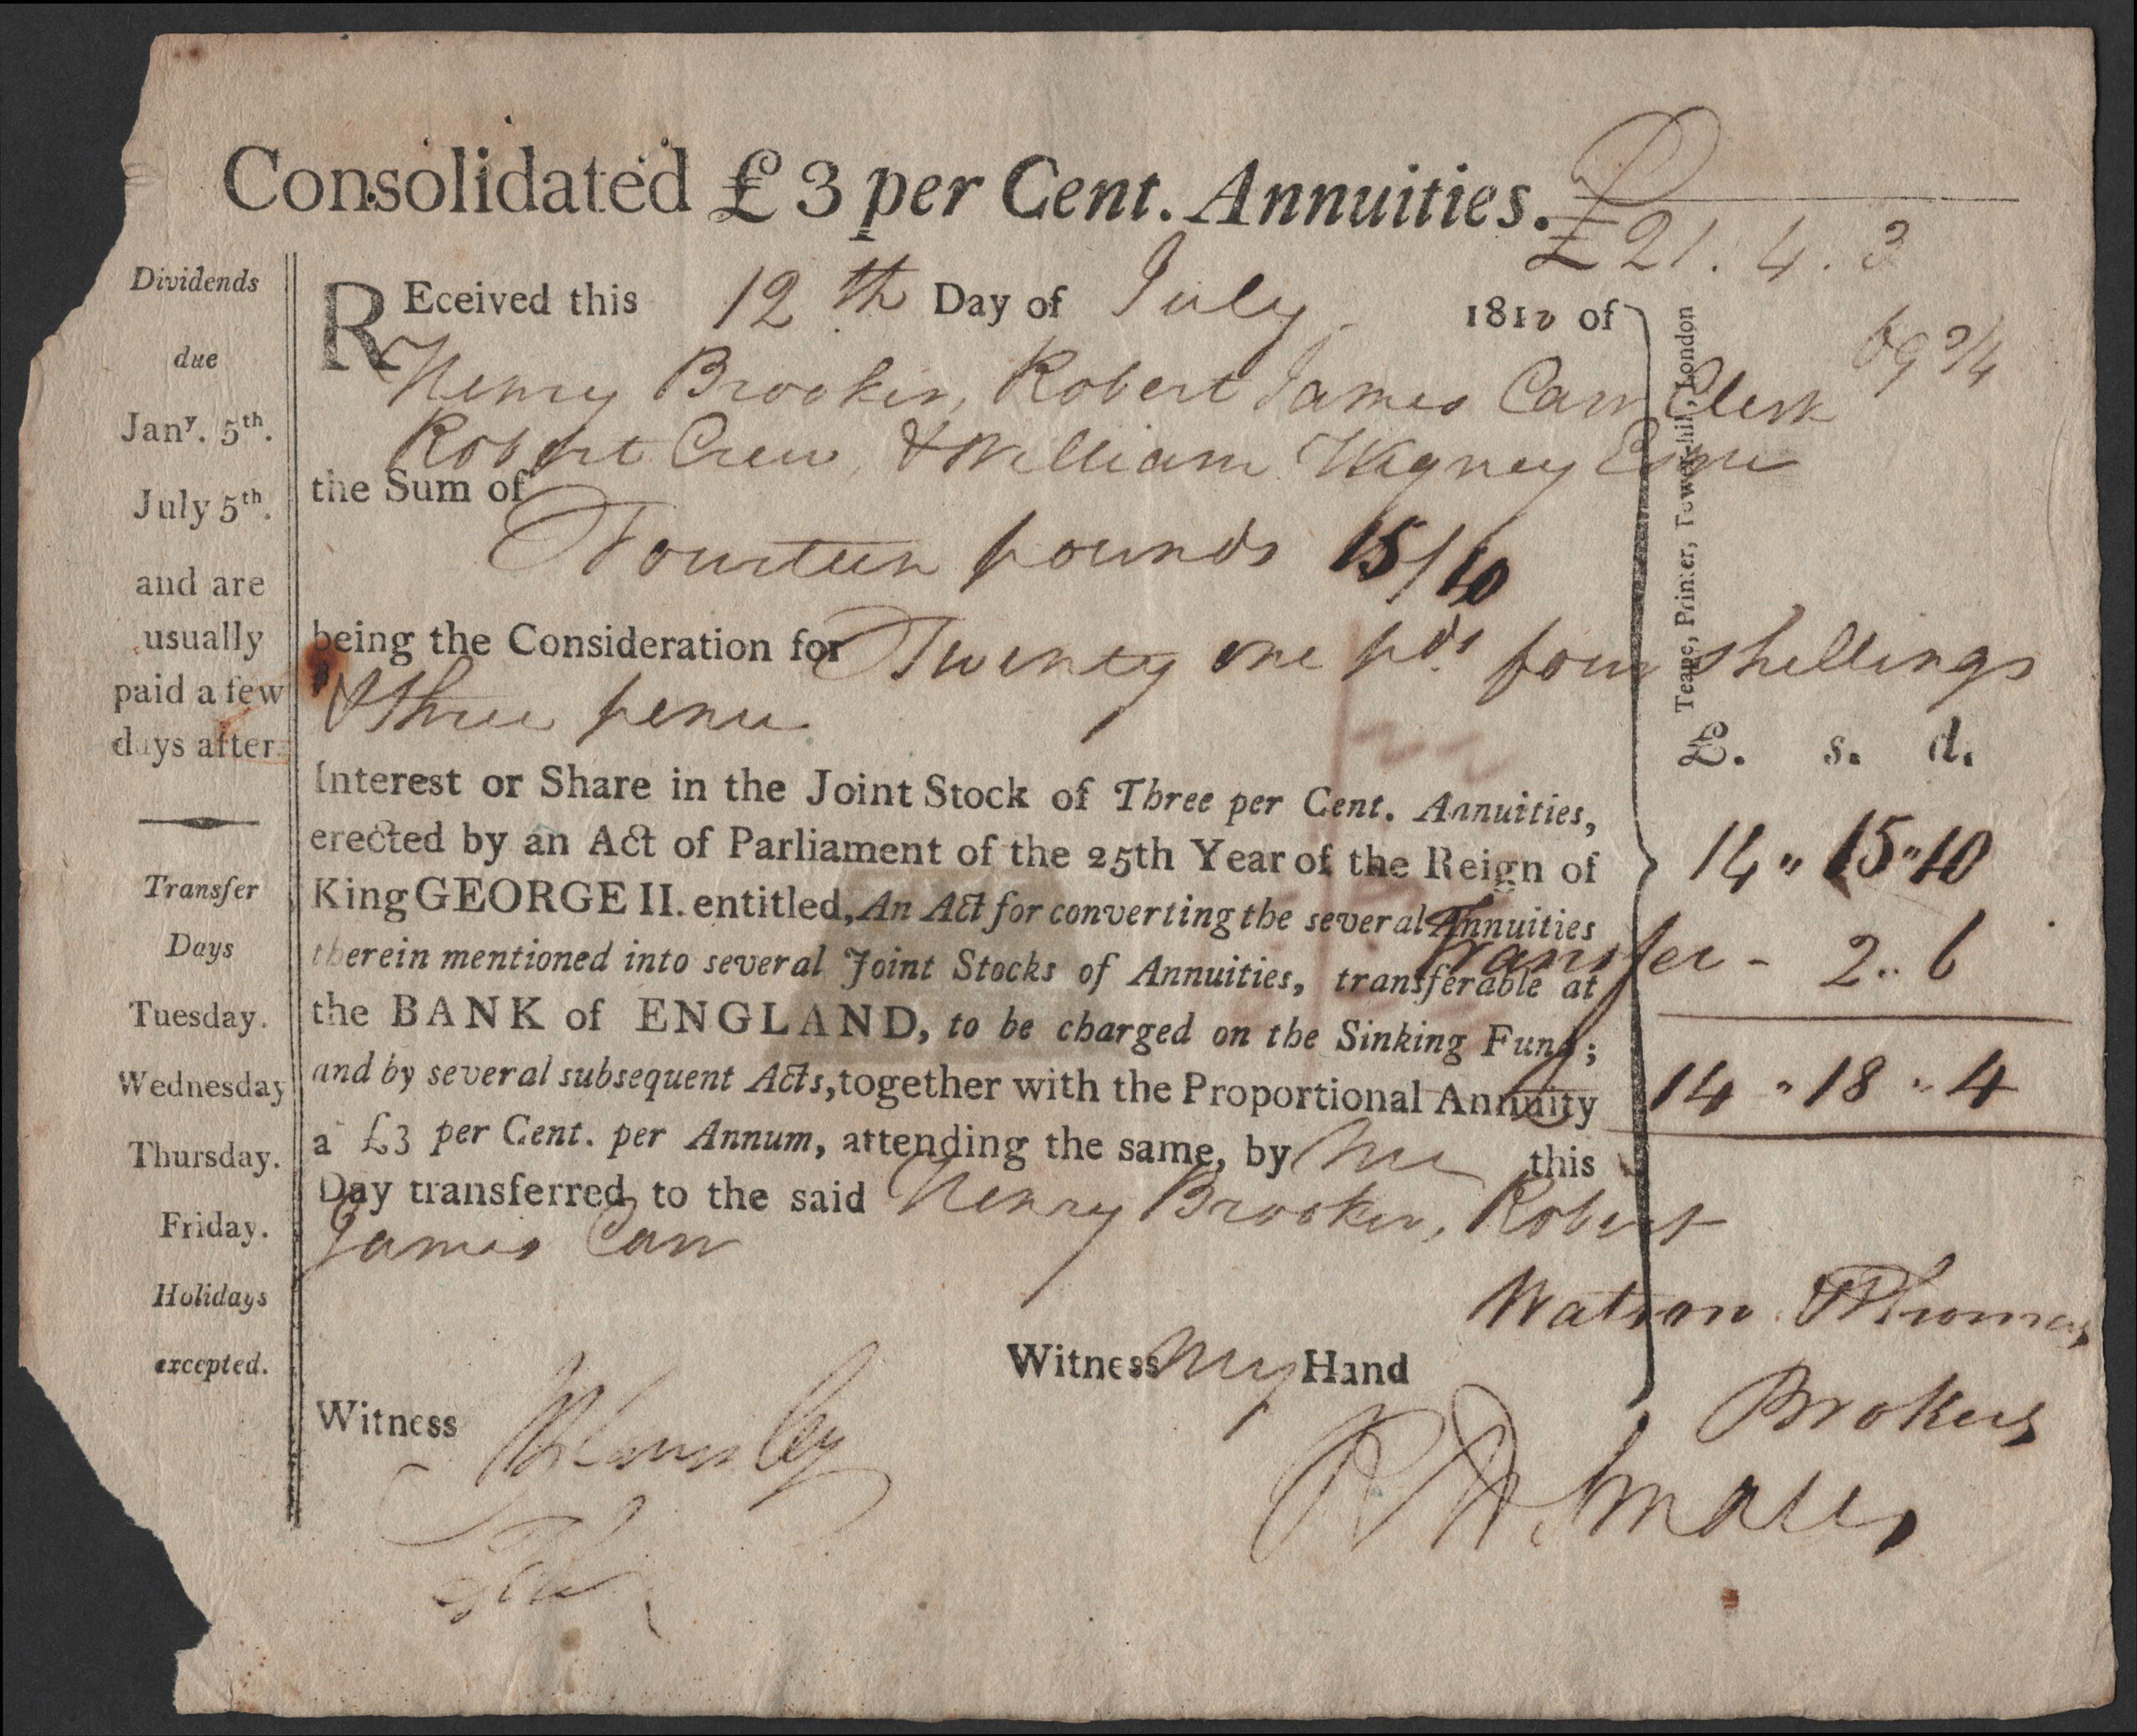 Consolidated £3 per Cent. Annuities.
£21. 4. 3
69 3/4
REceived this 12th Day of July 1810 of
Henry Brooker, Robert James Carr Clerk
Robert Crew, & William Wigney Esqre
the Sum of
Fourteen pounds 15/10
being the Consideration for Twenty one pds four shillings
& three pence
Interest or Share in the Joint Stock of Three per Cent. Annuities,
erected by an Act of Parliament of the 25th Year of the Reign of
King GEORGE II. entitled, An Act for converting the several Annuities
therein mentioned into several Joint Stocks of Annuities, transferable at
the BANK of ENGLAND, to be charged on the Sinking Fund;
and by several subsequent Acts, together with the Proportional Annuity
a £3 per Cent. per Annum, attending the same, by me this
Day transferred to the said Henry Brooker, Robert
James Carr
Witness my Hand
Witness
Dividends
due
Jany. 5th.
July 5th.
and are
usually
paid a few
days after
Transfer
Days
Tuesday.
Wednesday
Thursday.
Friday.
Holidays
excepted.
Teape, Printer, Tower-hill, London
£. s. d.
14 " 15 " 10
Transfer - 2 .. 6
14 " 18 " 4
Watson & Thomas
Brokers